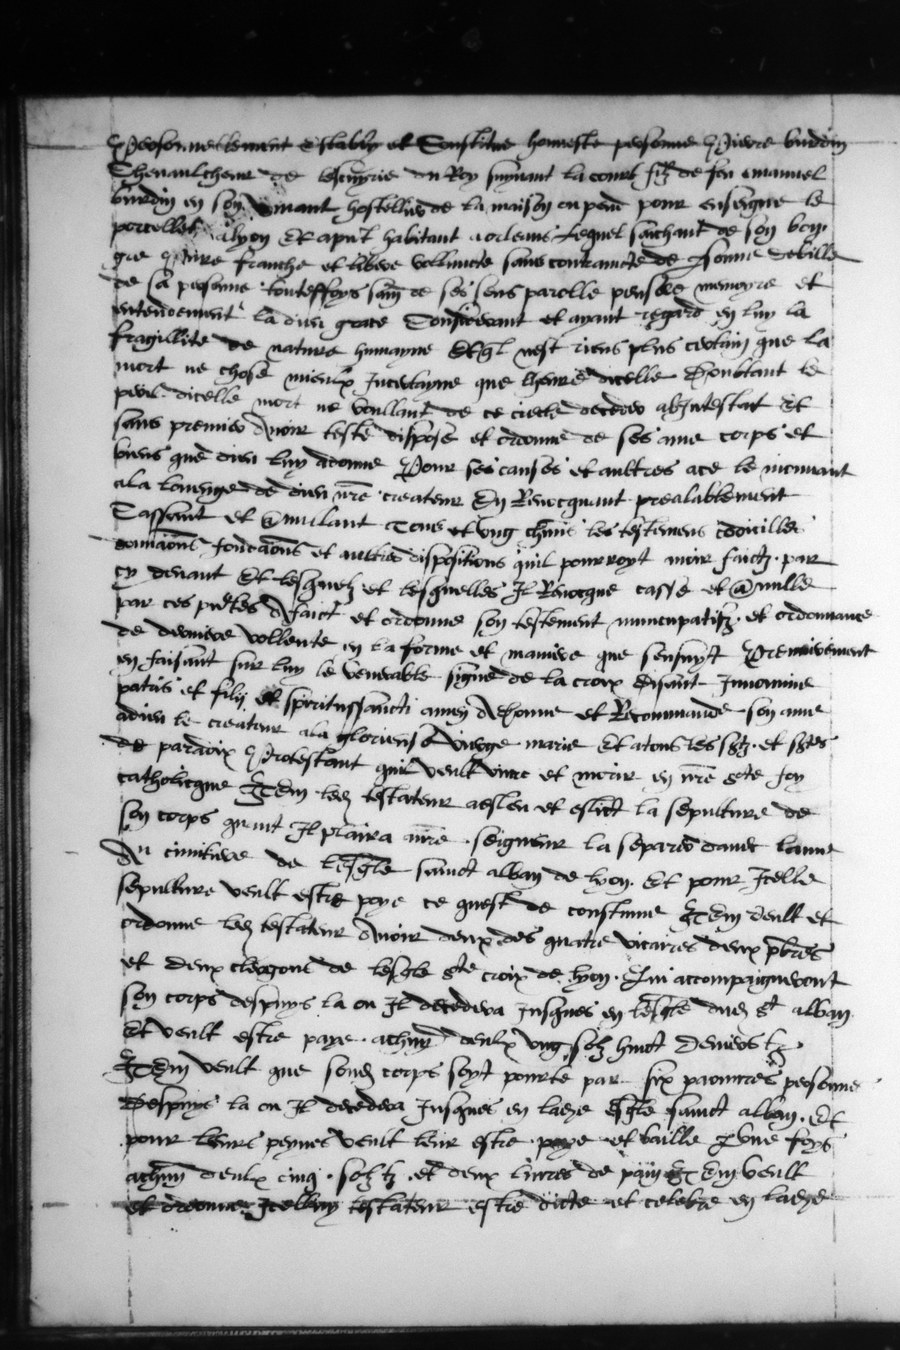 Personnellement estably et Constitue honneste personne Pierre burdin
Chevaulcheur de lescuyrie du Roy suyvant la court filz de feu emanuel
burdin en son vivant hostellier de la maison ou pend pour enseigne le
porcellet a lyon Et apnt habitant a orleans Lequel saichant de son bon
gre pure franche et libere vollunte sans contraincte de personne debille
de sa personne touteffoys sain de ses sens parolle pensees memoyre et
entendement la dieu grace Considerant et ayant regard en luy la
fragillite de nature humayne Et ql nest riens plus certain que la
mort ne chose mieulx Incertayne que lheure dicelle Doubtant le
peril dicelle mort ne voullant de ce ciecle deceder abIntestat Et
sans premier Avoir teste dispose et ordonne de ses ame corps et
biens que dieu luy a donne Pour ses causes et aultres a ce le mouvant
a la louenge de dieu nre createur En Revocquant prealablement
Cassant et Anullant Tous et ung chuns les testemens codicilles
donnaons et aultres dispositions quil pourroyt avoir faictz par
cy devant Et lesquelz et lesquelles Il Revocque casse et Anulle
par ces pntes A faict et ordonne son testement nuncupatifz et ordonnance
de derniere vollente en la forme et maniere que sensuyt Premierement
en faisant sur luy le venerable signe de la croix disant Innomine
patris et filij et spiritussancti amen A donne et Recommande son ame
a dieu le createur a la glorieuse Vierge marie Et a tous les sctz et sctes
de paradix Protestant quil veult vivre et morir en nre scte foy
catholicque Item led testateur a esleu et eslict la sepulture de
son corps quant Il plaira a nre seigneur la separer davec lame
Au cimitiere de lesglse sainct alban de lyon Et pour Icelle
sepulture veult estre paye ce quest de constume Item veult et
ordonne led testateur Avoir deux des quatre vicaires deux pbres
et deux clergons de lesglse ste croix de lyon Qui accompaigneront
son corps despuys la ou Il decedera Jusques en lesglse dud st alban
Et veult estre paye a chun deulx ung solz huict deniers tz
Item veult que sond corps soyt pourte par six paouvres personnes
Despuys la ou Il decedera Jusques en ladte esglse sainct alban Et
pour leurs peynes veult leur estre paye et baille Une foys
a chun deulx cinq solz tz et deux livres de pain Item veult
et ordonne Icelluy testateur estre dicte et celebre en ladte